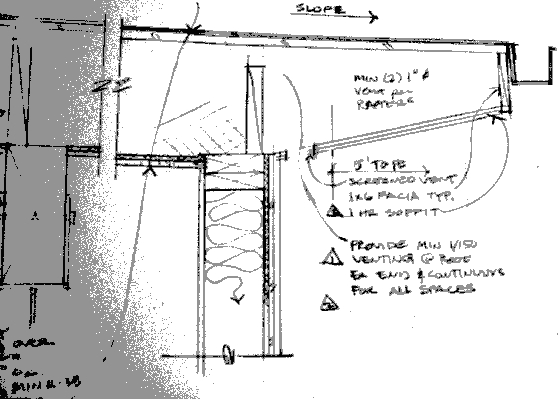 SLOPE
MIN (2) 1" ∅
VENT per
RAFTERS
SCREENED VENT
1x6 FACIA TYP.
1 HR SOFFIT
PROVIDE MIN 1/150
VENTING @ ROOF
EA END & CONTINUOUS
FOR ALL SPACES
OVER
MIN R-38